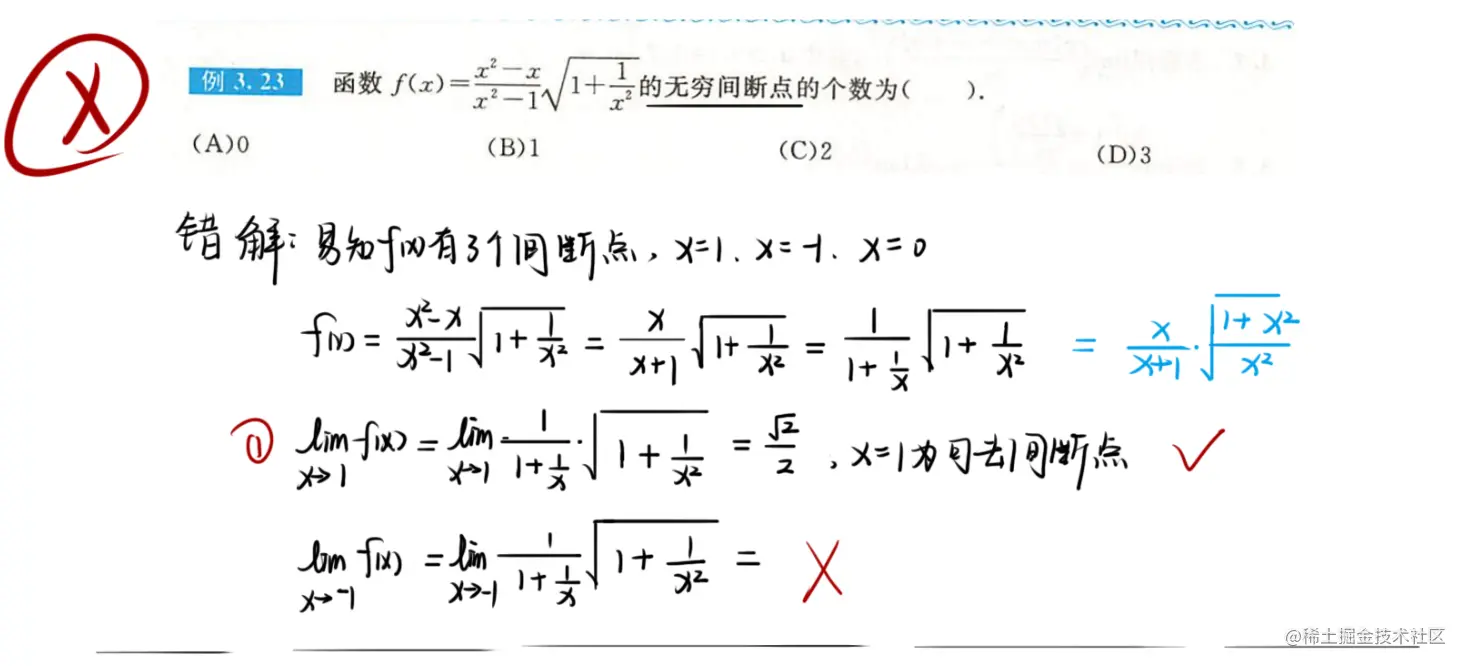 例 3.23 函数 f(x)=\frac{x^2-x}{x^2-1}\sqrt{1+\frac{1}{x^2}}的无穷间断点的个数为( ).
(A)0 (B)1 (C)2 (D)3
错解：易知f(x)有3个间断点，x=1、x=-1、x=0
f(x)=\frac{x^2-x}{x^2-1}\sqrt{1+\frac{1}{x^2}}=\frac{x}{x+1}\sqrt{1+\frac{1}{x^2}}=\frac{1}{1+\frac{1}{x}}\sqrt{1+\frac{1}{x^2}}=\frac{x}{x+1}·\sqrt{\frac{1+x^2}{x^2}}
① \lim_{x→1}f(x)=\lim_{x→1}\frac{1}{1+\frac{1}{x}}·\sqrt{1+\frac{1}{x^2}}=\frac{\sqrt{2}}{2}，x=1为可去间断点 ✓
\lim_{x→-1}f(x)=\lim_{x→-1}\frac{1}{1+\frac{1}{x}}\sqrt{1+\frac{1}{x^2}}= X
@稀土掘金技术社区